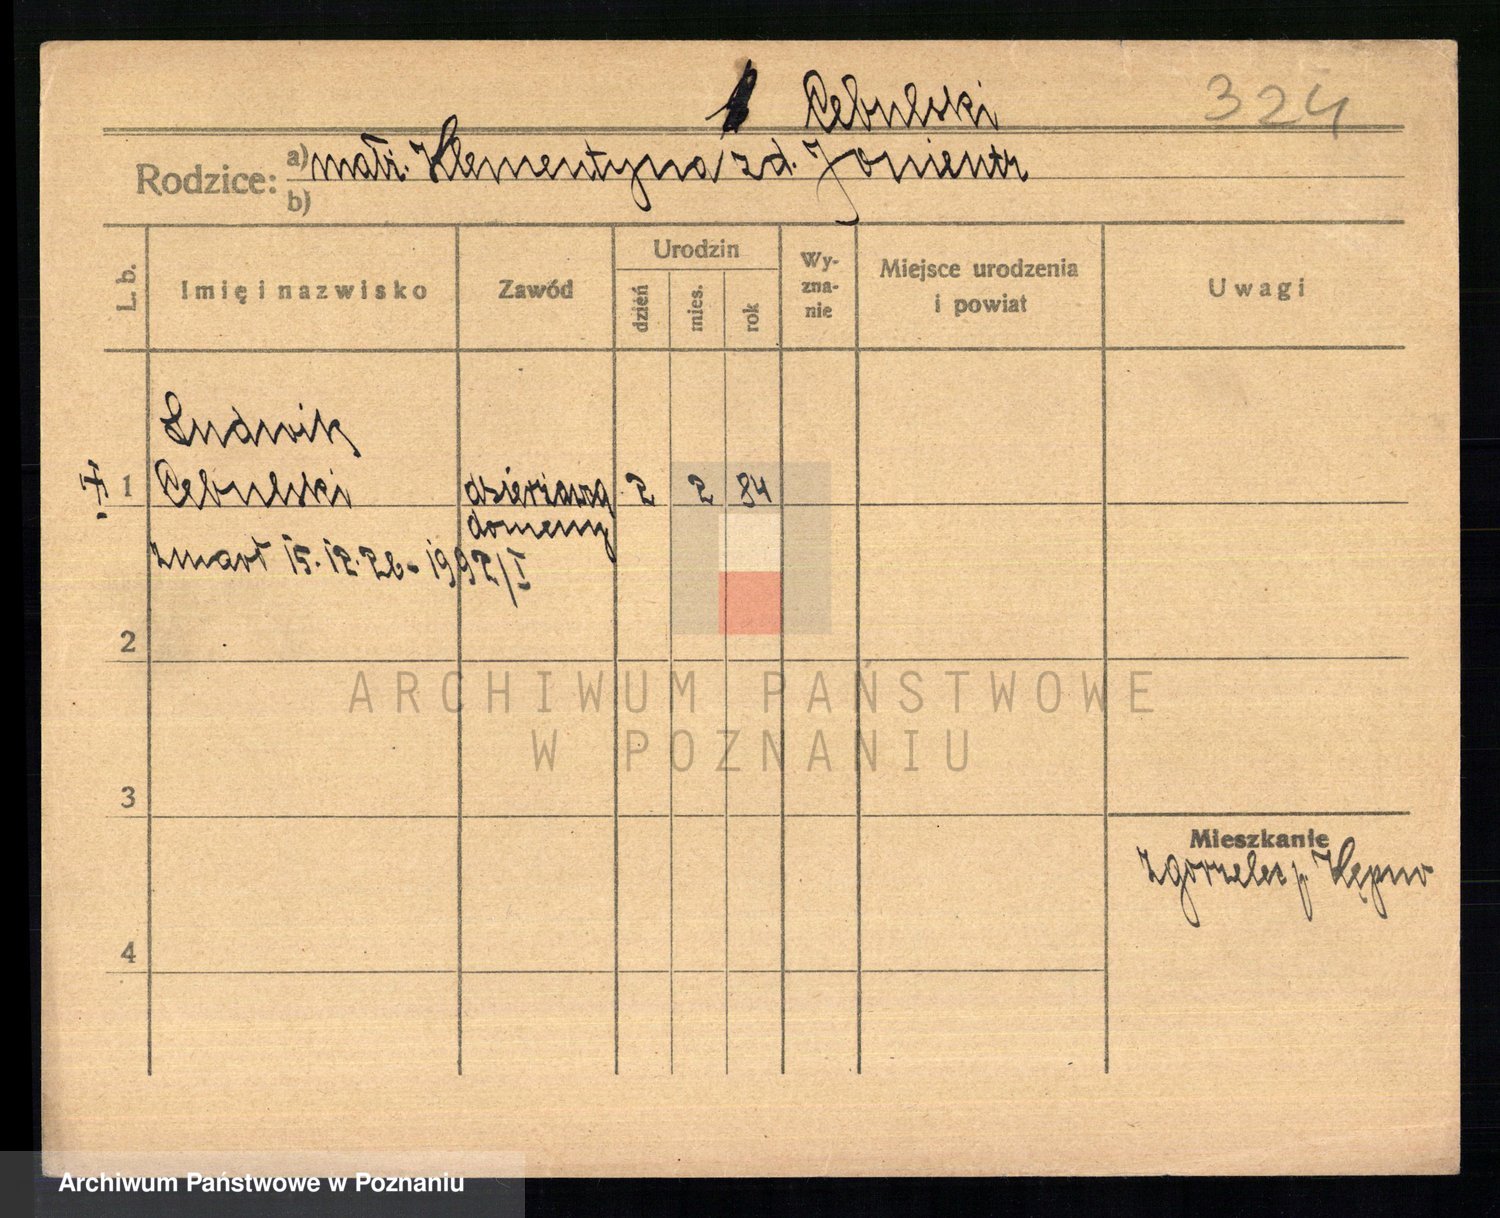 Cebulski 324
Rodzice: a) małż. Klementyna zd. Jonientz
b)
L. b. Imię i nazwisko Zawód Urodzin dzień mies. rok Wy-zna-nie Miejsce urodzenia i powiat Uwagi
Ludwik
1 Cebulski dzierżawca 2 2 84
domeny
zmarł 15.12.26 - 1992/I
2
ARCHIWUM PAŃSTWOWE
W POZNANIU
3
Mieszkanie
Zgorzelec p. Kępno
4
Archiwum Państwowe w Poznaniu